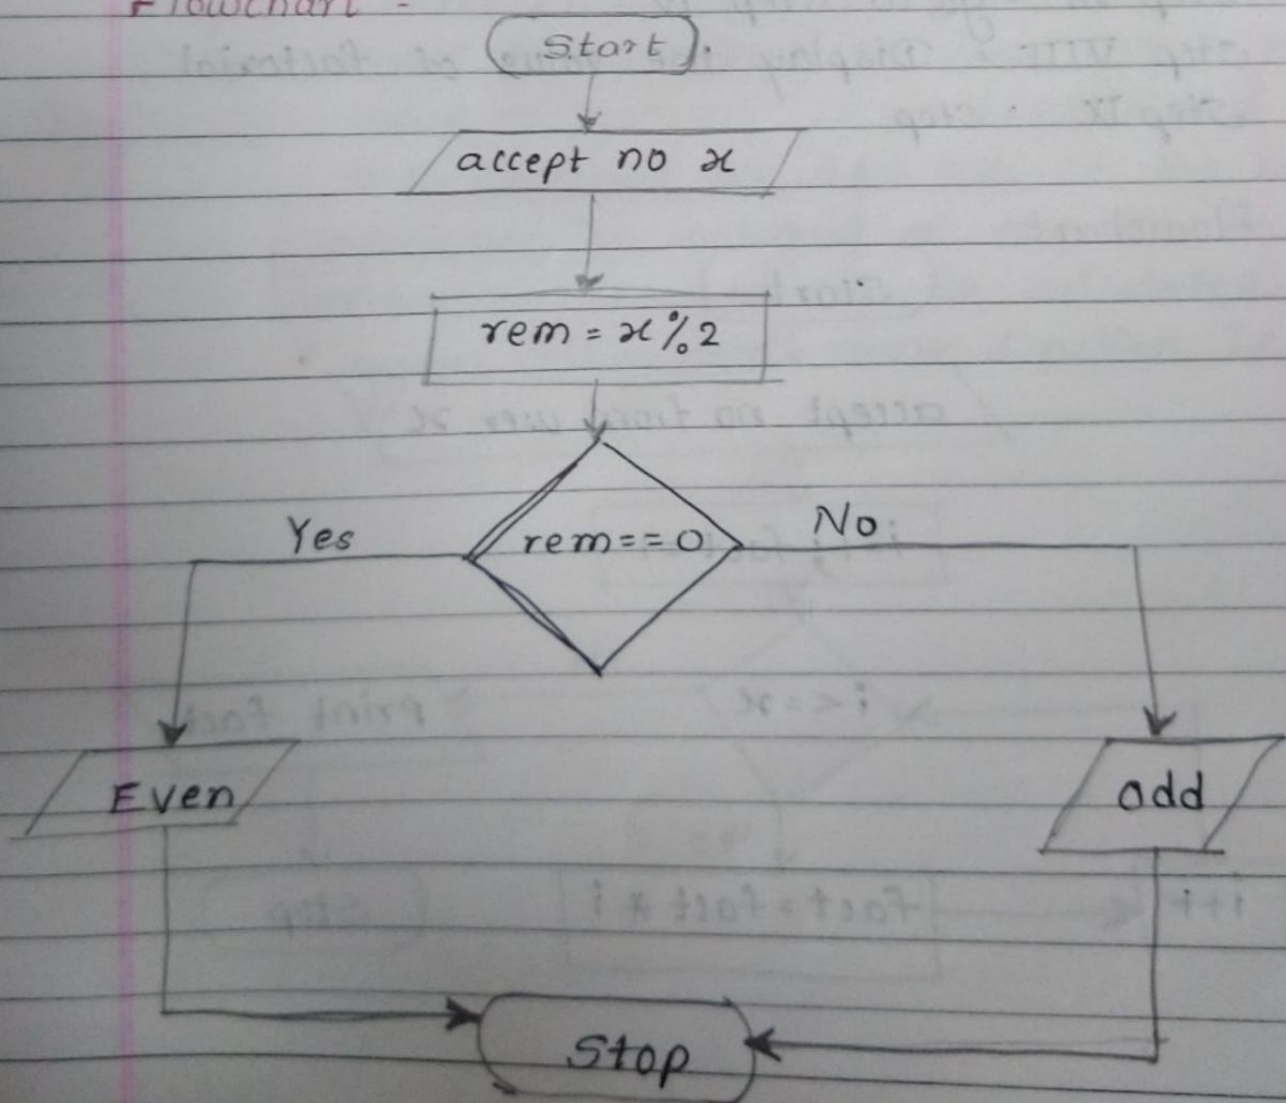 Flowchart -
Start
accept no x
rem = x%2
Yes
rem==0
No
Even
odd
Stop